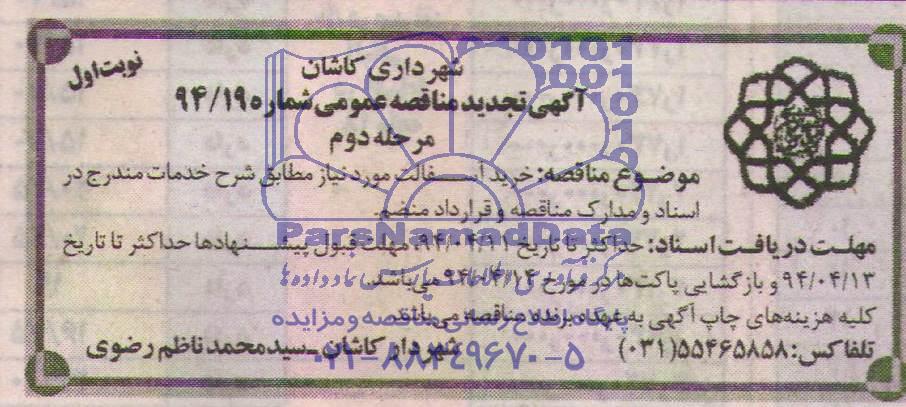 نوبت اول
شهرداری کاشان
آگهی تجدید مناقصه عمومی شماره ۹۴/۱۹
مرحله دوم
موضوع مناقصه: خرید آسفالت مورد نیاز مطابق شرح خدمات مندرج در
اسناد و مدارک مناقصه و قرارداد منضم.
ParsNamadData
مهلت دریافت اسناد: حداکثر تا تاریخ مهلت قبول پیشنهادها حداکثر تا تاریخ
۹۴/۰۴/۱۳ و بازگشایی پاکت‌ها در مورخ ۹۴/۰۴/۱۴ می‌باشد.
کلیه هزینه‌های چاپ آگهی به عهده برنده مناقصه می‌باشد.
پایگاه اطلاع رسانی مناقصه و مزایده
تلفاکس: ۵۵۴۶۵۸۵۸(۰۳۱) شهردار کاشان – سید محمد ناظم رضوی
۰۲۱-۸۸۳۴۹۶۷۰-۵